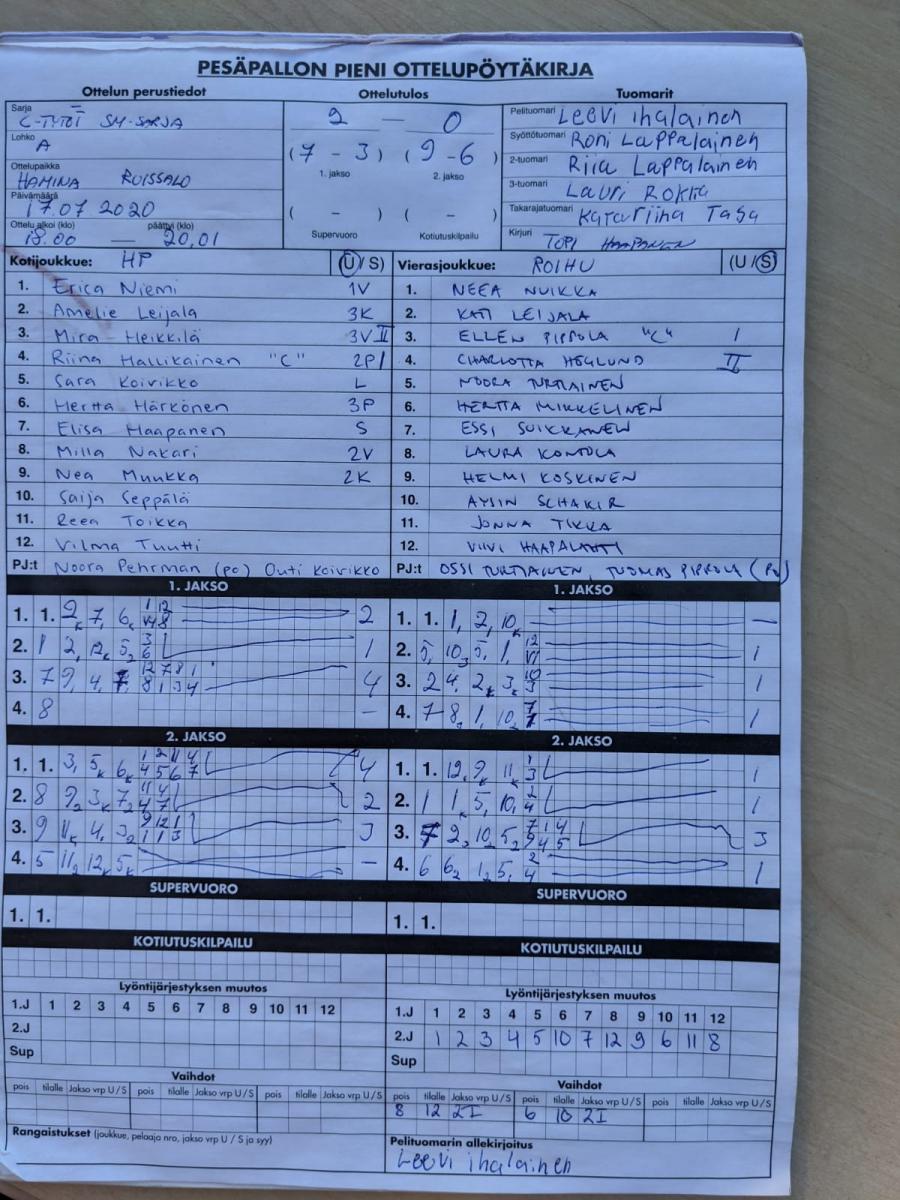 PESÄPALLON PIENI OTTELUPÖYTÄKIRJA
Ottelun perustiedot
Sarja
C-TYTÖT SM-SARJA
Lohko
A
Ottelupaikka
HAMINA RUISSALO
Päivämäärä
17.07 2020
Ottelu alkoi (klo) päättyi (klo)
18.00 — 20,01
Ottelutulos
2 — 0
(7 - 3) (9 - 6)
1. jakso 2. jakso
( - ) ( - )
Supervuoro Kotiutuskilpailu
Tuomarit
Pelituomari Leevi ihalainen
Syöttötuomari Roni Lappalainen
2-tuomari Riia Lappalainen
3-tuomari Lauri Rokka
Takarajatuomari Katariina Tasa
Kirjuri TOPI HAAPANEN
Kotijoukkue: HP (U/S)
1. Erica Niemi 1V
2. Amelie Leijala 3K
3. Mira Heikkilä 3V II
4. Riina Hallikainen "C" 2P I
5. Sara Koivikko L
6. Hertta Härkönen 3P
7. Elisa Haapanen S
8. Milla Nakari 2V
9. Nea Muukka 2K
10. Saija Seppälä
11. Reea Toikka
12. Vilma Tuutti
PJ:t Noora Pehrman (po) Outi Koivikko
Vierasjoukkue: ROIHU (U/S)
1. NEEA NUIKKA
2. KATI LEIJALA
3. ELLEN PIPPOLA "C" I
4. CHARLOTTA HÖGLUND II
5. NOORA TURTIAINEN
6. HERTTA MIKKELINEN
7. ESSI SUIKKANEN
8. LAURA KONTOLA
9. HELMI KOSKINEN
10. AYSIN SCHAKIR
11. JONNA TIKKA
12. VIIVI HAAPALAHTI
PJ:t OSSI TURTIAINEN, TUOMAS PIPPOLA (PO)
1. JAKSO
1. 1. 2
2. 1 2, 12K 5, 1
3. 7 9, 4, 4
4. 8 –
1. JAKSO
1. 1. 1, 2, 10K –
2. 5, 10, 5, 1, 1
3. 2 4, 2K 3, 1
4. 7 8, 1, 10, 1
2. JAKSO
1. 1. 3, 5K 6K 4
2. 8 9 3K 7 2
3. 9 11K 4, 3 3
4. 5 11 12K 5K –
2. JAKSO
1. 1. 12, 9K 11K 1
2. 1 1, 5, 10, 1
3. 7 2, 10 5 3
4. 6 6 1 5, 1
SUPERVUORO
1. 1.
SUPERVUORO
1. 1.
KOTIUTUSKILPAILU
KOTIUTUSKILPAILU
Lyöntijärjestyksen muutos
1.J 1 2 3 4 5 6 7 8 9 10 11 12
2.J
Sup
Lyöntijärjestyksen muutos
1.J 1 2 3 4 5 6 7 8 9 10 11 12
2.J 1 2 3 4 5 10 7 12 9 6 11 8
Sup
Vaihdot
pois tilalle Jakso vrp U/S pois tilalle Jakso vrp U/S pois tilalle Jakso vrp U/S
Vaihdot
pois tilalle Jakso vrp U/S pois tilalle Jakso vrp U/S pois tilalle Jakso vrp U/S
8 12 2I 6 10 2I
Rangaistukset (joukkue, pelaaja nro, jakso vrp U / S ja syy)
Pelituomarin allekirjoitus
Leevi ihalainen